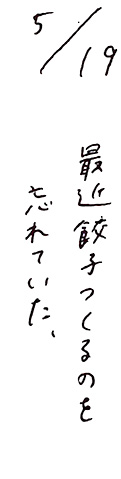 5/19
最近餃子つくるのを
忘れていた、